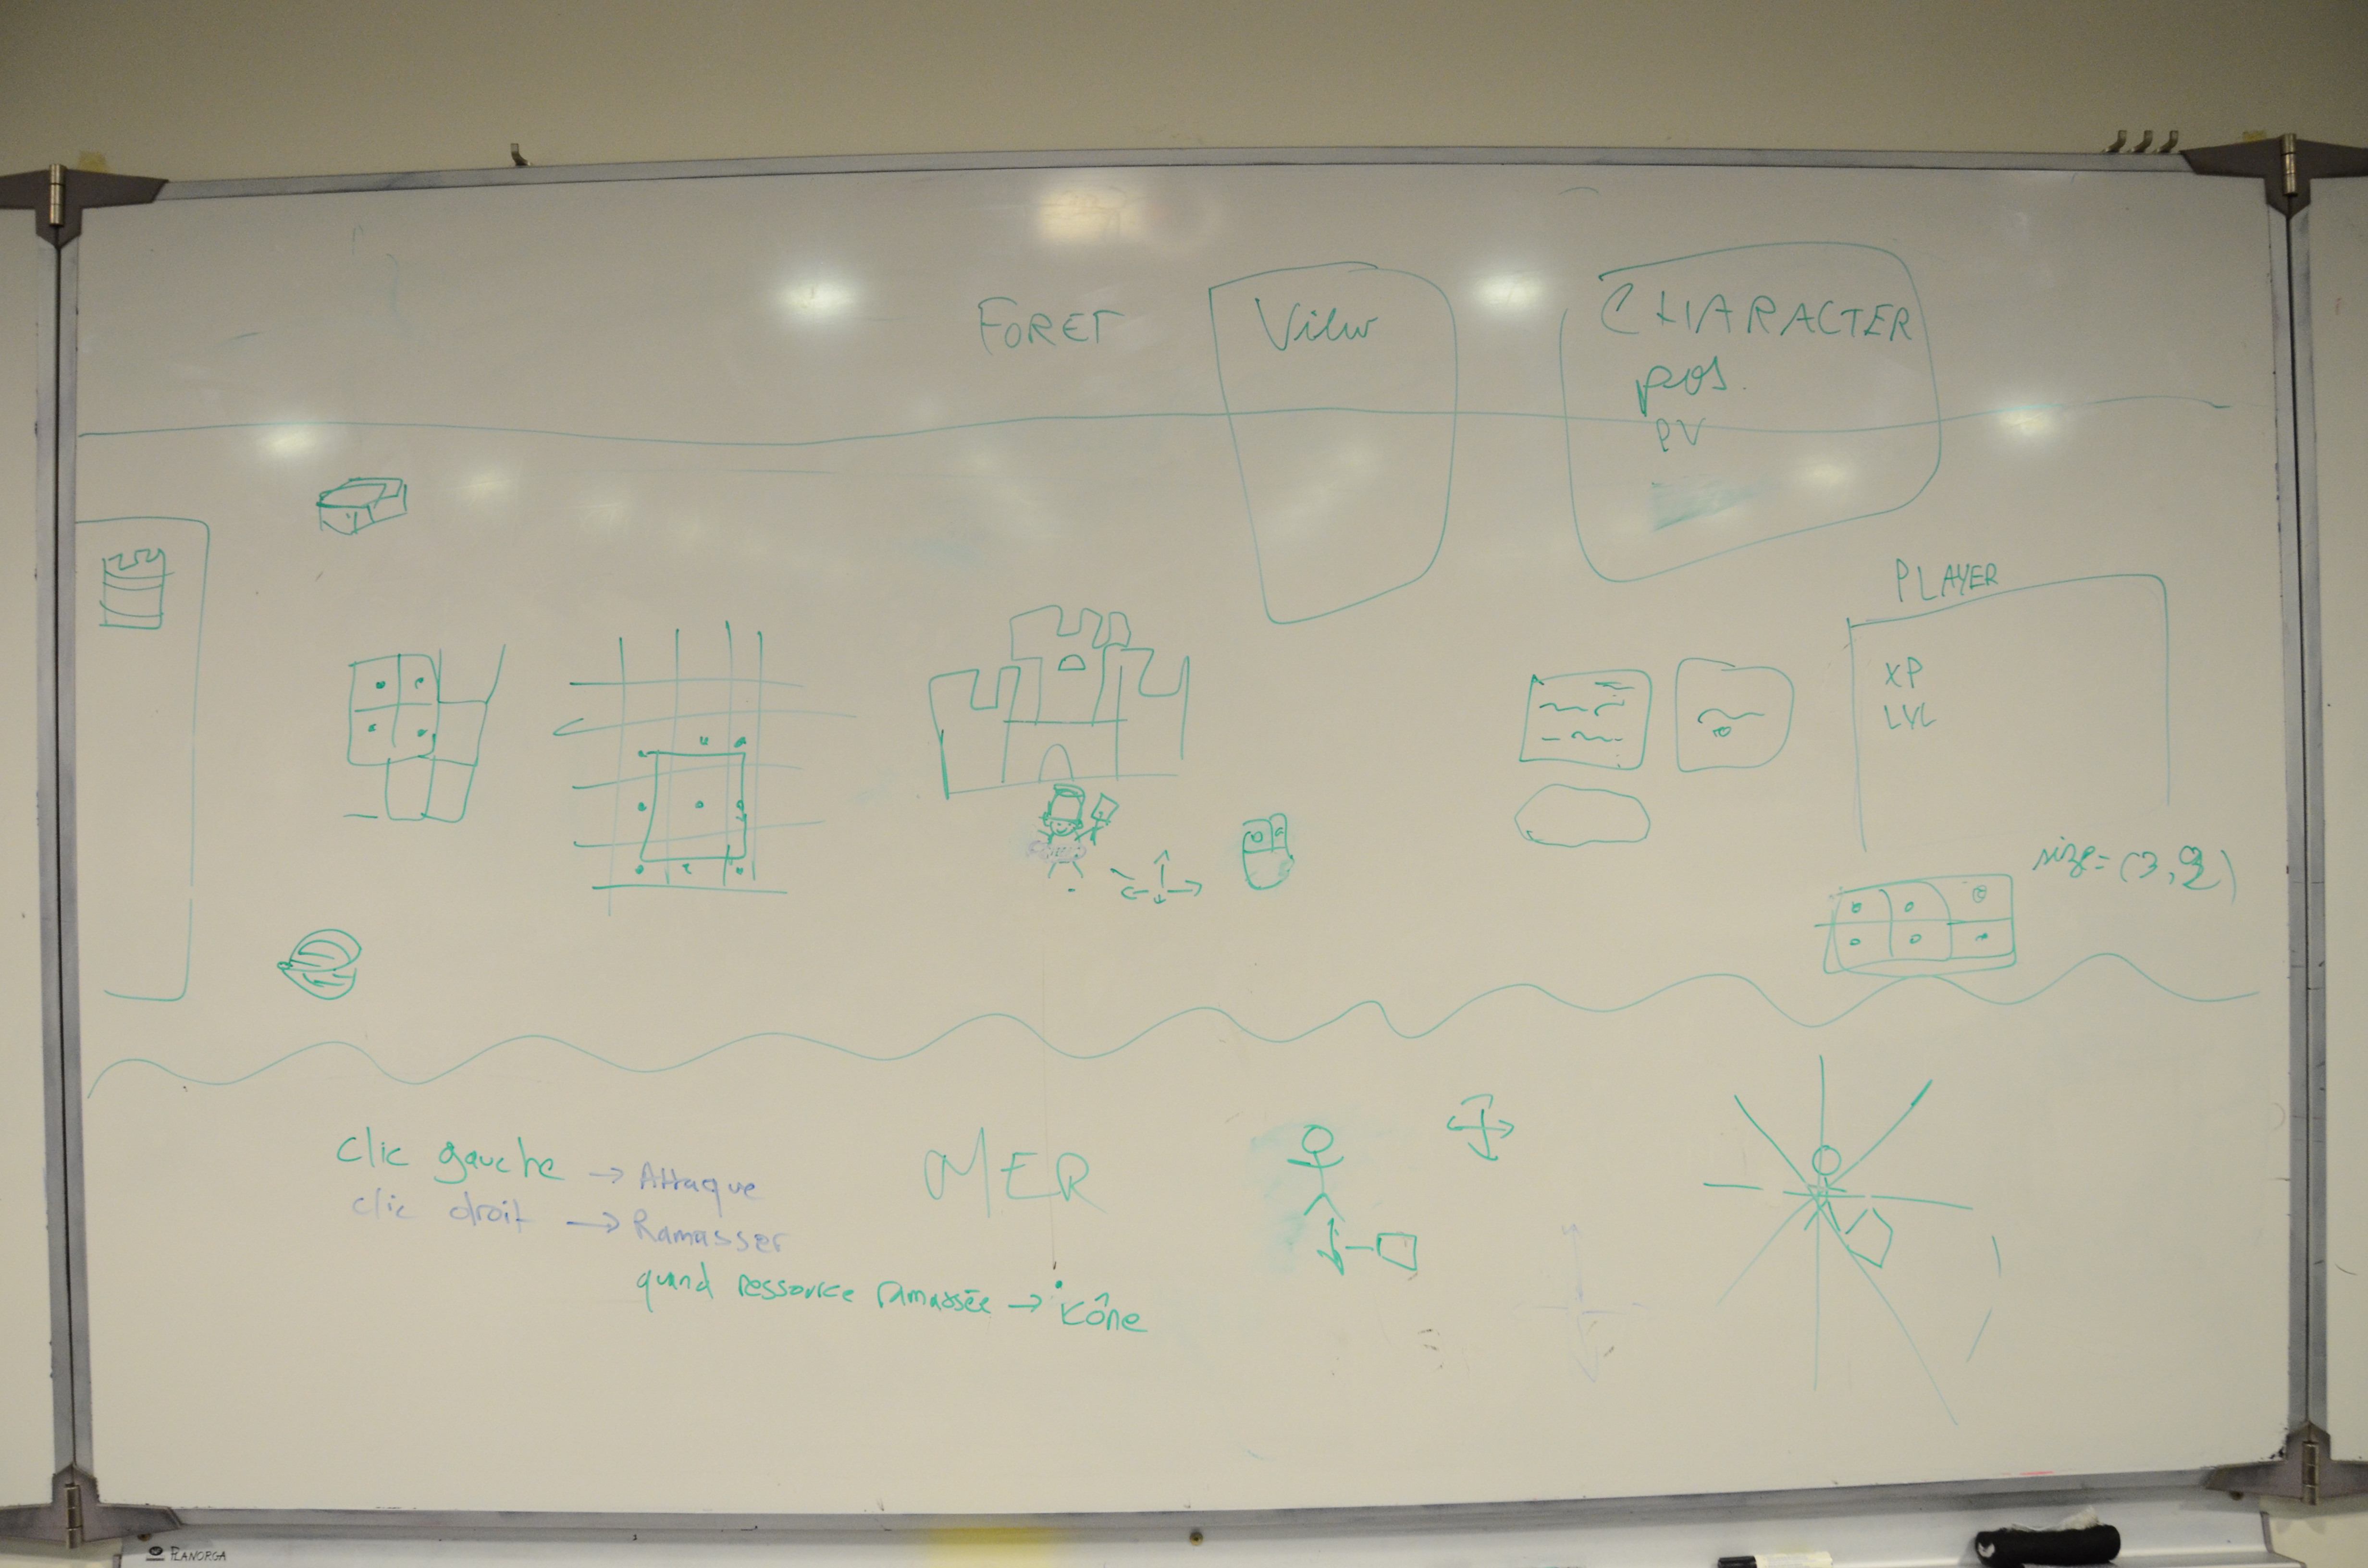 FORET
View
CHARACTER
pos.
PV
PLAYER
XP
LVL
size=(3,2)
clic gauche → Attaque
clic droit → Ramasser
quand ressource ramassée → icône
MER
PLANORGA